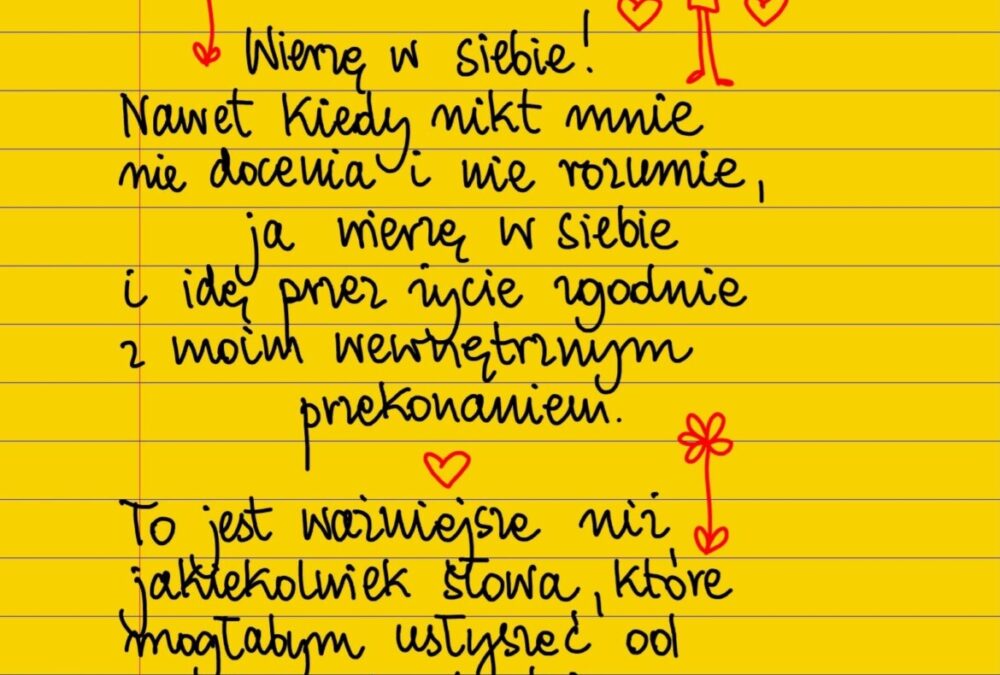 Wierzę w siebie!
Nawet kiedy nikt mnie
nie docenia i nie rozumie,
ja wierzę w siebie
i idę przez życie zgodnie
z moim wewnętrznym
przekonaniem.
To jest ważniejsze niż
jakiekolwiek słowa, które
mogłabym usłyszeć od